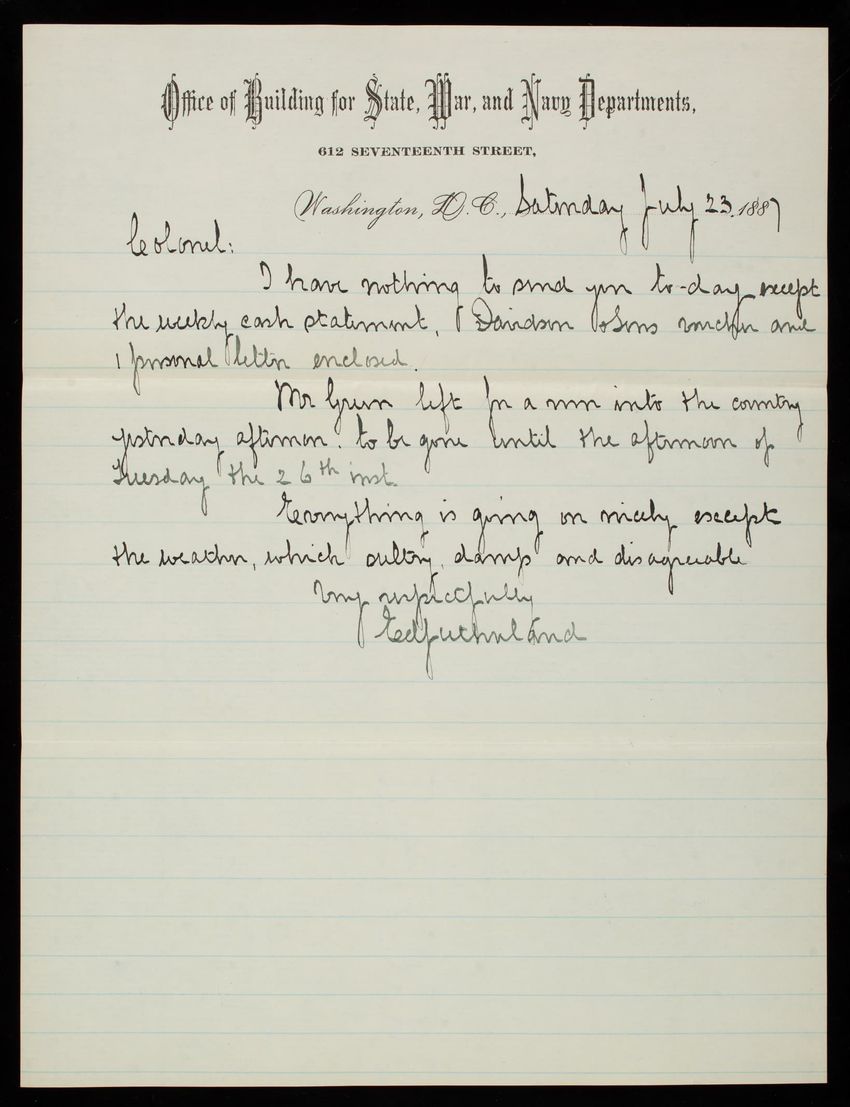 Office of Building for State, War, and Navy Departments,
612 SEVENTEENTH STREET,
Washington, D.C., Saturday July 23. 1887
Colonel:
I have nothing to send you to-day except
the weekly cash statement, 1 Davidson & Sons voucher and
1 personal letter enclosed.
Mr Green left for a run into the country
yesterday afternoon. to be gone until the afternoon of
Tuesday the 26th inst.
Everything is going on nicely except
the weather, which sultry, damp and disagreeable
Very respectfully